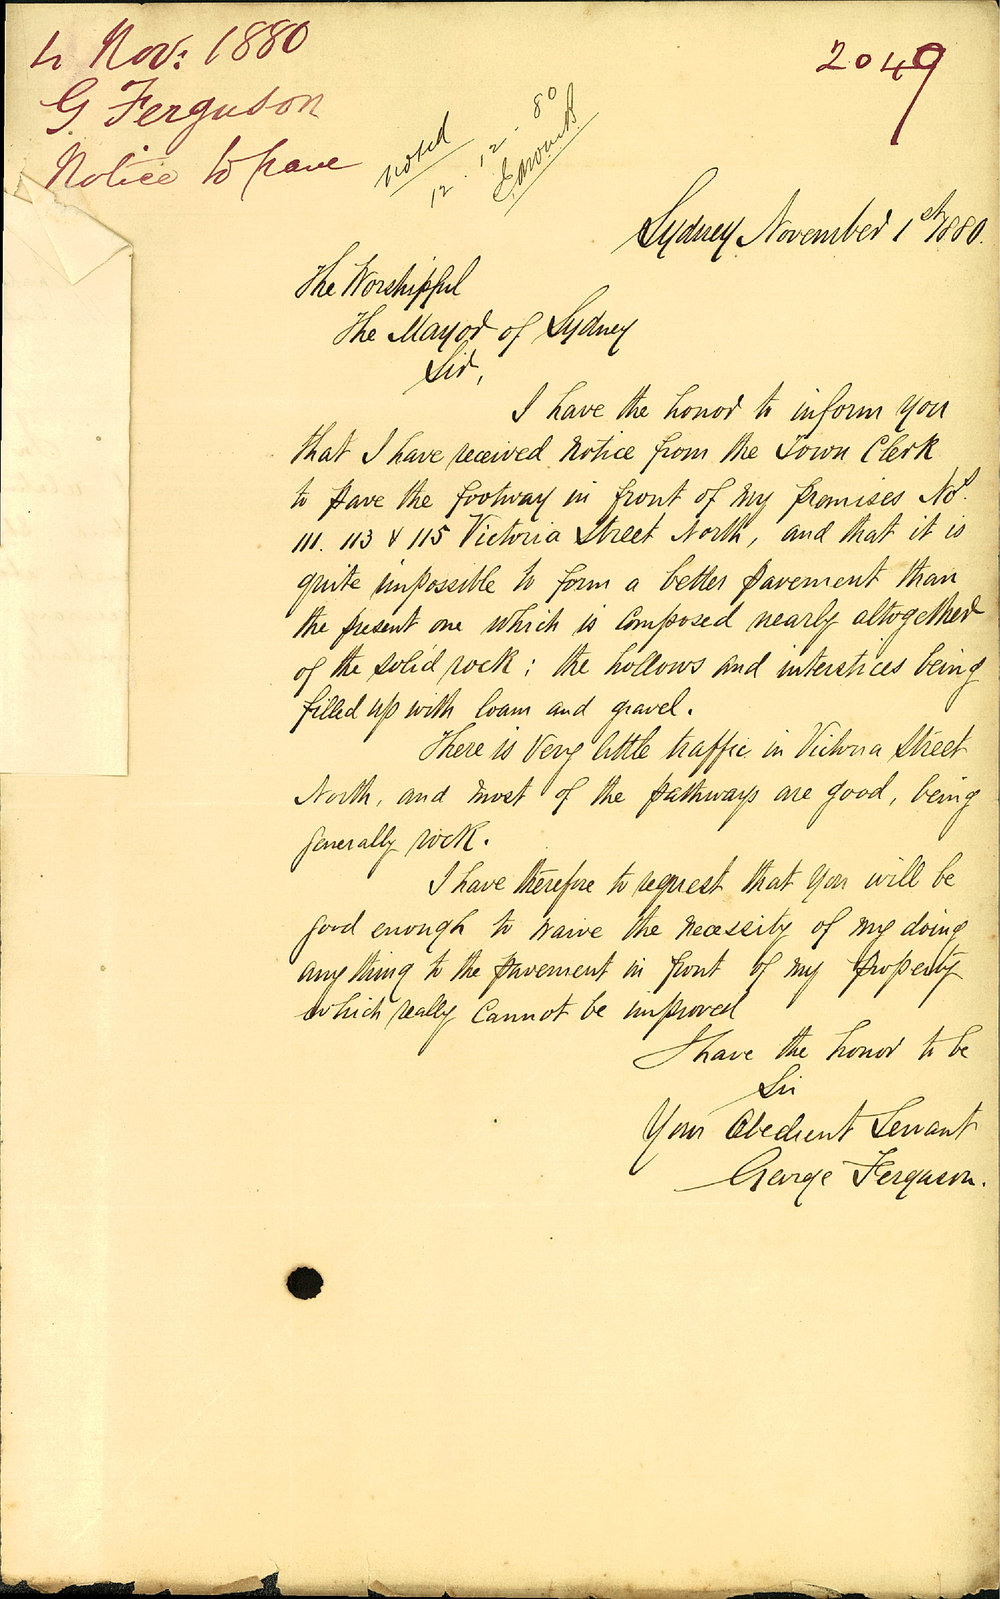 4 Nov: 1880
G. Ferguson
Notice to pave
2049
noted
12.12.80
Sydney November 1st/1880.
The Worshipful
The Mayor of Sydney
Sir,
I have the honor to inform you
that I have received notice from the Town Clerk
to pave the footway in front of my premises Nos.
111. 113 & 115 Victoria Street North, and that it is
quite impossible to form a better pavement than
the present one which is composed nearly altogether
of the solid rock; the hollows and interstices being
filled up with loam and gravel.
There is very little traffic in Victoria Street
North, and most of the pathways are good, being
generally rock.
I have therefore to request that you will be
good enough to waive the necessity of my doing
any thing to the pavement in front of my property
which really cannot be improved
I have the honor to be
Sir
Your Obedient Servant
George Ferguson.